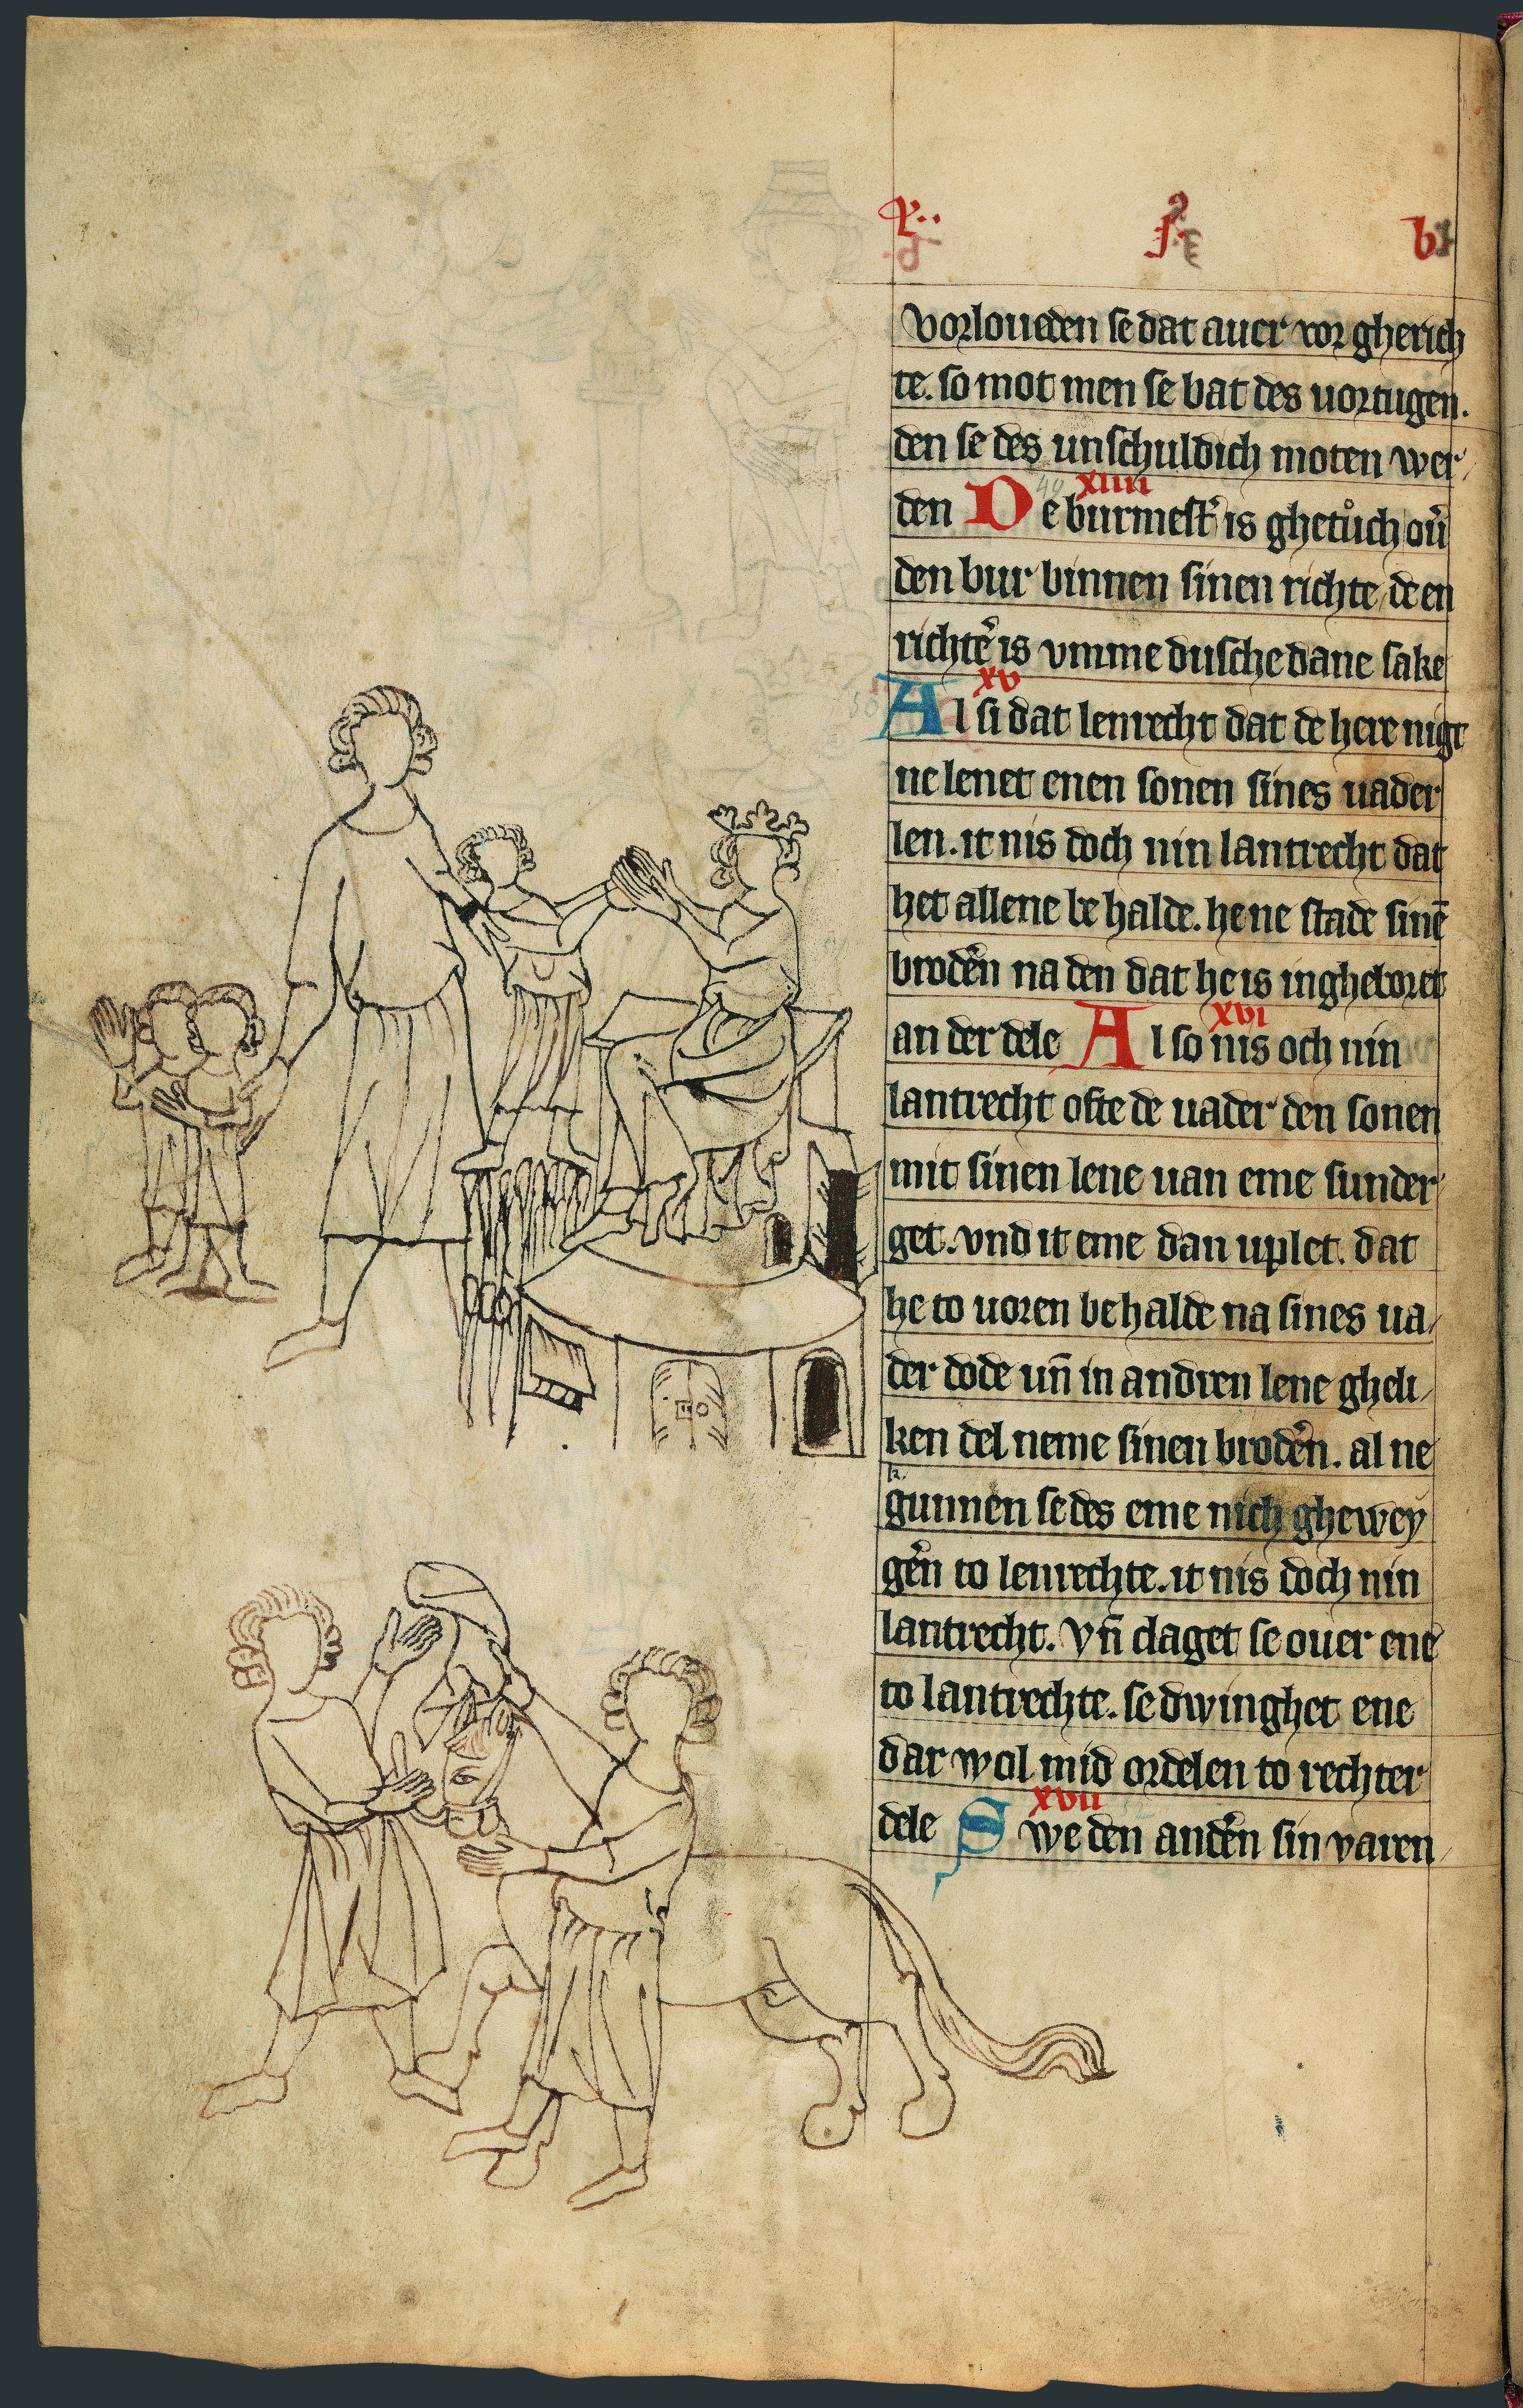 vorloueden se dat auer vor gherich
te. so mot men se bat des vortugen.
den se des unschuldich moten wer
den De burmest͛ is ghetůch ou̅
xiiii
den bur binnen sinen richte de en
richt͛e is vmme dusche dane sake
xv
Al si dat lenrecht dat de here nigt
ne lenet enen sonen sines uader
len. it nis doch nin lantrecht dat
het allene be halde. he ne stade sine̅
brod͛en na den dat he is ingheboret
xvi
an der dele Al so nis och nin
lantrecht ofte de uader den sonen
mit sinen lene uan eme sunder
get. vnd it eme dan uplet. dat
he to uoren behalde na sines ua
der dode un̅ in andren lene gheli
ken del neme sinen brod͛en. al ne
k
gunnen se des eme nich ghewey
g͛en to lenrechte. it nis doch nin
lantrecht. vn̅ claget se ouer ene
to lantrechte. se dwinghet ene
dar wol mid ordelen to rechter
xvii
dele Swe den and͛en sin varen